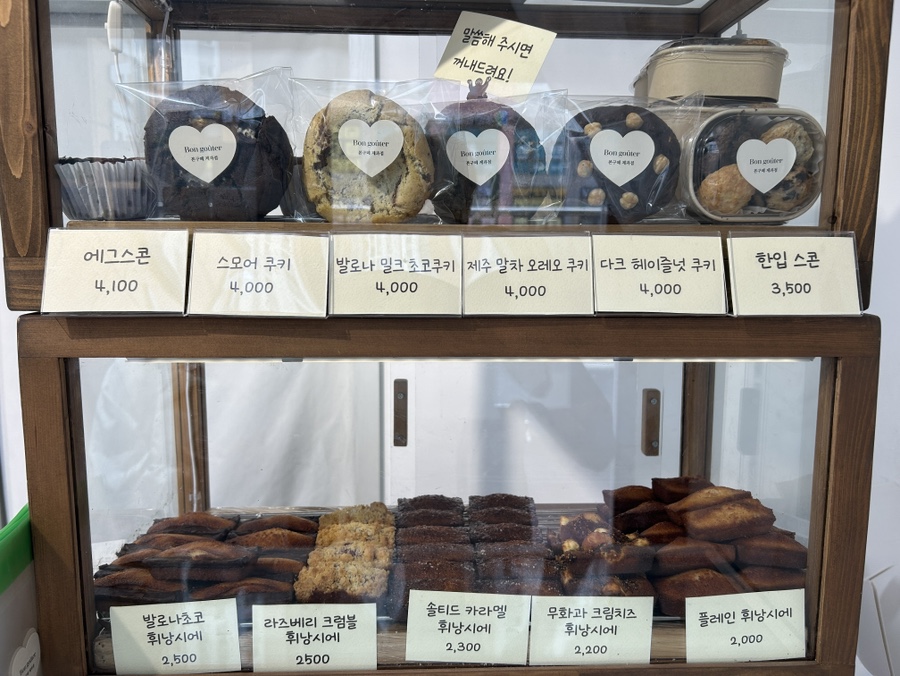 말씀해 주시면
꺼내드려요!
Bon goûter
본구떼 제과점
Bon goûter
본구떼 제과점
Bon goûter
본구떼 제과점
Bon goûter
본구떼 제과점
Bon goûter
본구떼 제과점
에그스콘
4,100
스모어 쿠키
4,000
발로나 밀크 초코쿠키
4,000
제주 말차 오레오 쿠키
4,000
다크 헤이즐넛 쿠키
4,000
한입 스콘
3,500
발로나초코
휘낭시에
2,500
라즈베리 크럼블
휘낭시에
2500
솔티드 카라멜
휘낭시에
2,300
무화과 크림치즈
휘낭시에
2,200
플레인 휘낭시에
2,000